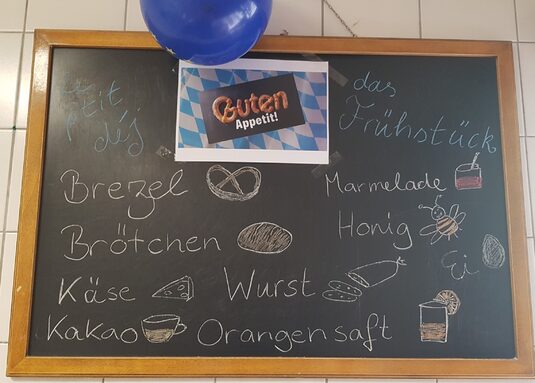 le
p'tit
déj
Guten
Appetit!
das
Frühstück
Brezel
Marmelade
Brötchen
Honig
Ei
Käse
Wurst
Kakao
Orangensaft